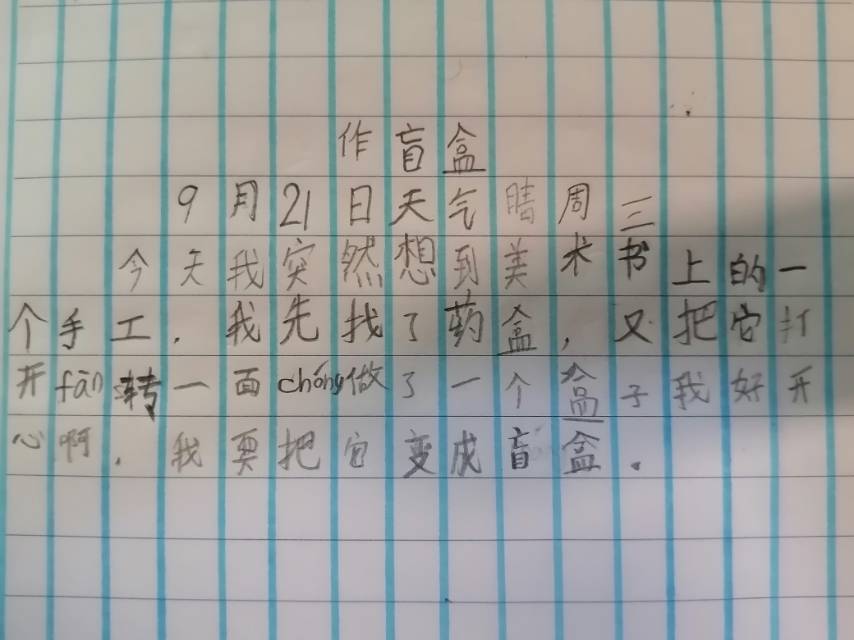 作盲盒
9月21日天气晴周三
今天我突然想到美术书上的一
个手工，我先找了药盒，又把它打
开fān转一面chóng做了一个盒子我好开
心啊．我要把它变成盲盒．